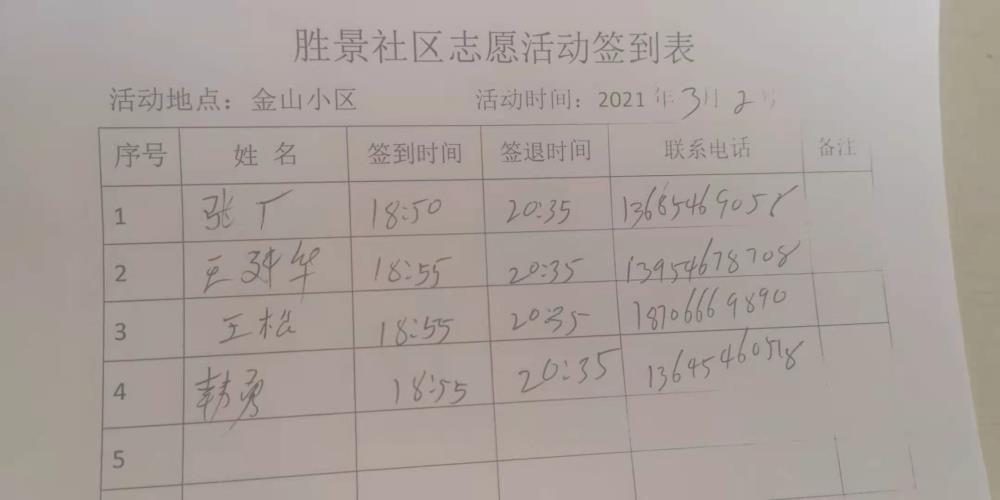 胜景社区志愿活动签到表
活动地点：金山小区 活动时间：2021年3月2号
序号 姓名 签到时间 签退时间 联系电话 备注
1 张丁 18:50 20:35 13685469058
2 王华 18:55 20:35 13954678708
3 王松 18:55 20:35 18706669890
4 韩勇 18:55 20:35 13645460518
5